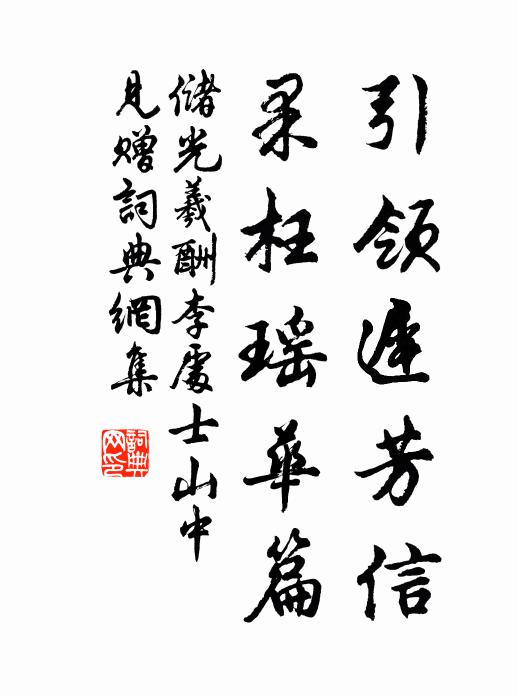 引領遲芳信
果枉瑤華篇
儲光羲酬李處士山中
見贈詞典網集
詞典網印